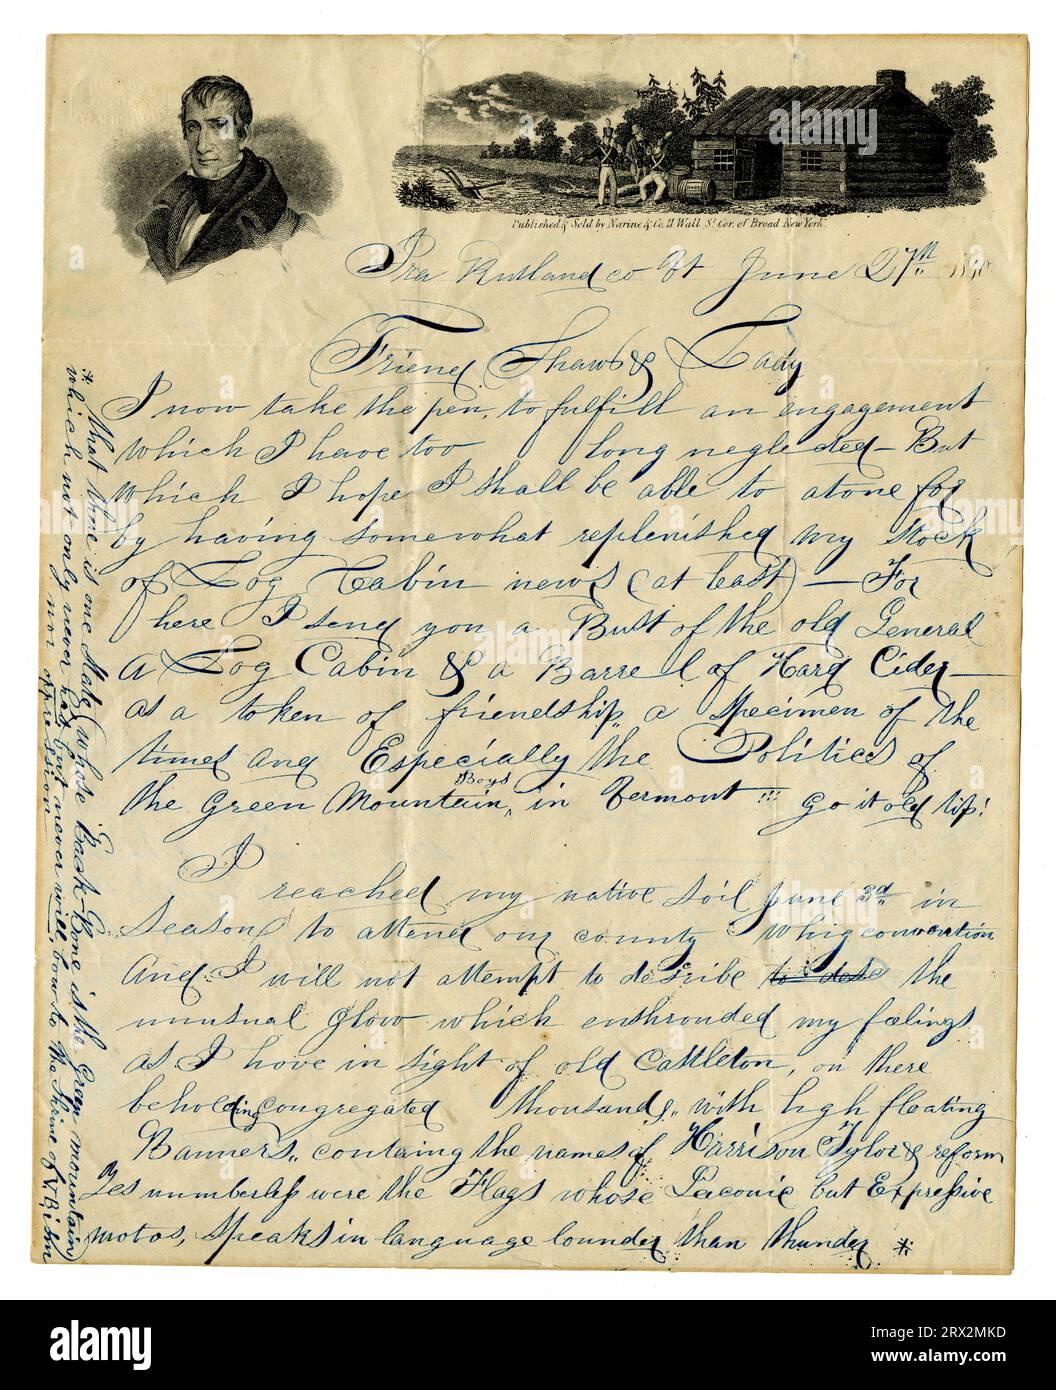 Published & Sold by Narine & Co. 11 Wall St. Cor. of Broad New York.
Ira Rutland co Vt June 27th 1840
Friend Shaw & Lady
I now take the pen, to fulfill an engagement
which I have too long neglected - But
which I hope I shall be able to atone for
by having somewhat replenished my stock
of Log Cabin news (at least) - For
here I send you a Bust of the old General
A Log Cabin & a Barrel of Hard Cider -
as a token of friendship, a specimen of the
times and Especially the Politics of
the Green Mountain Boys, in Vermont!!! Go it old tip!
I reached my native soil June 3d in
season to attend our county Whig convention
And I will not attempt to describe the
unusual glow which enshrouded my feelings
as I hove in sight of old Castleton, on there
beholding congregated thousands, with high floating
Banners, containg the names of Harrison Tylor & reform
Yes numberless were the Flags whose Laconic but Expressive
motos, speaks in language lounder than thunder *
* that there is one State (whose Back-Bone is the Green mountain)
which not only never has but never will bow to the Shrine of V.B.ism
nor oppression
alamy
Image ID: 2RX2MKD
www.alamy.com